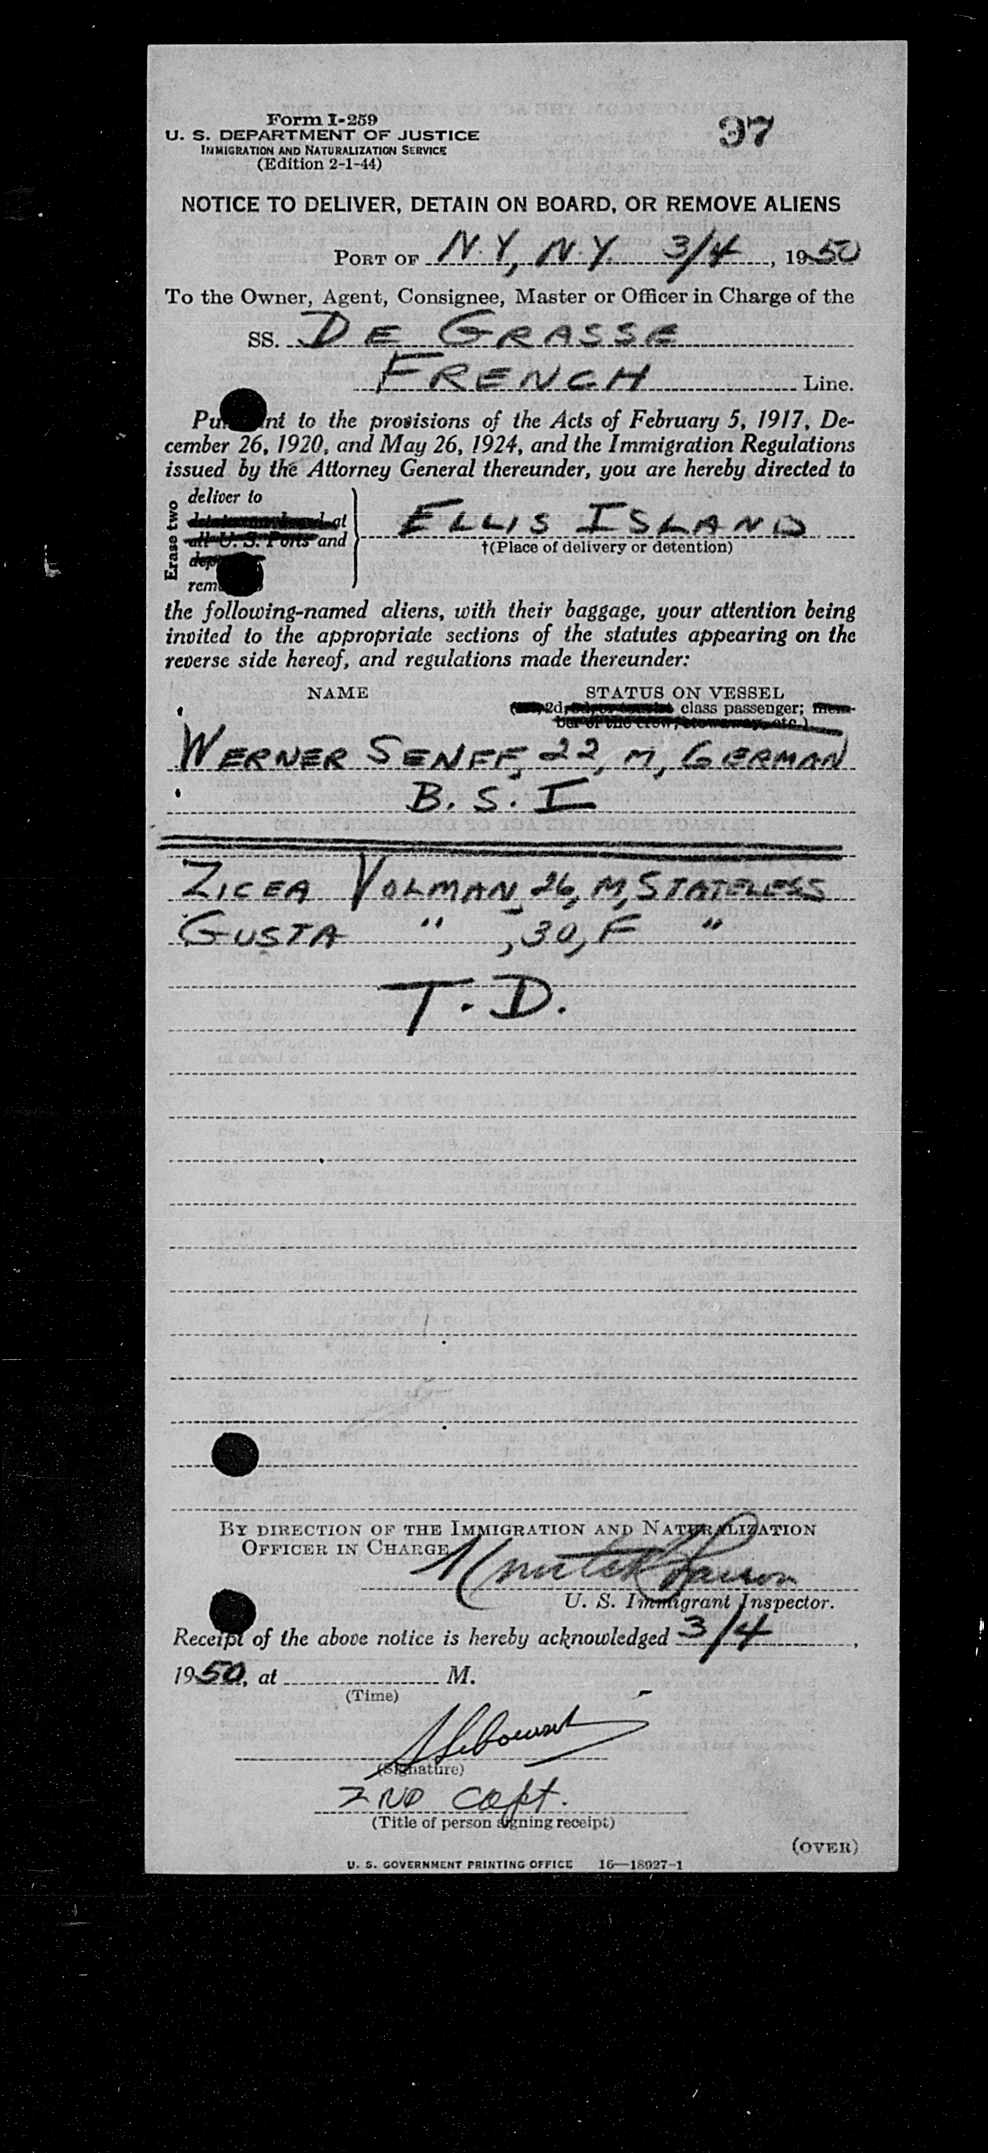 Form I-259
U. S. DEPARTMENT OF JUSTICE
IMMIGRATION AND NATURALIZATION SERVICE
(Edition 2-1-44)
97
NOTICE TO DELIVER, DETAIN ON BOARD, OR REMOVE ALIENS
PORT OF N.Y, N.Y. 3/4, 1950
To the Owner, Agent, Consignee, Master or Officer in Charge of the
SS. DE GRASSE
FRENCH Line.
Pursuant to the provisions of the Acts of February 5, 1917, De-
cember 26, 1920, and May 26, 1924, and the Immigration Regulations
issued by the Attorney General thereunder, you are hereby directed to
Erase two
deliver to
at
all U. S. Ports and
rem
ELLIS ISLAND
†(Place of delivery or detention)
the following-named aliens, with their baggage, your attention being
invited to the appropriate sections of the statutes appearing on the
reverse side hereof, and regulations made thereunder:
NAME STATUS ON VESSEL
2d, class passenger; mem-
ber of the crew, stowaway, etc.)
WERNER SENFF, 22, M, GERMAN
B. S. I
ZICEA VOLMAN, 26, M, STATELESS
GUSTA " , 30, F "
T. D.
BY DIRECTION OF THE IMMIGRATION AND NATURALIZATION
OFFICER IN CHARGE
U. S. Immigrant Inspector.
Receipt of the above notice is hereby acknowledged 3/4,
1950, at M.
(Time)
(Signature)
2ND Capt.
(Title of person signing receipt)
(OVER)
U. S. GOVERNMENT PRINTING OFFICE 16—18927-1